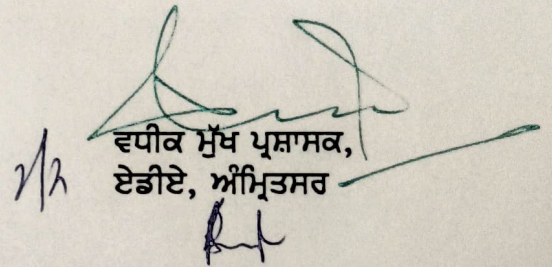 ਵਧੀਕ ਮੁੱਖ ਪ੍ਰਸ਼ਾਸਕ,
ਏਡੀਏ, ਅੰਮ੍ਰਿਤਸਰ